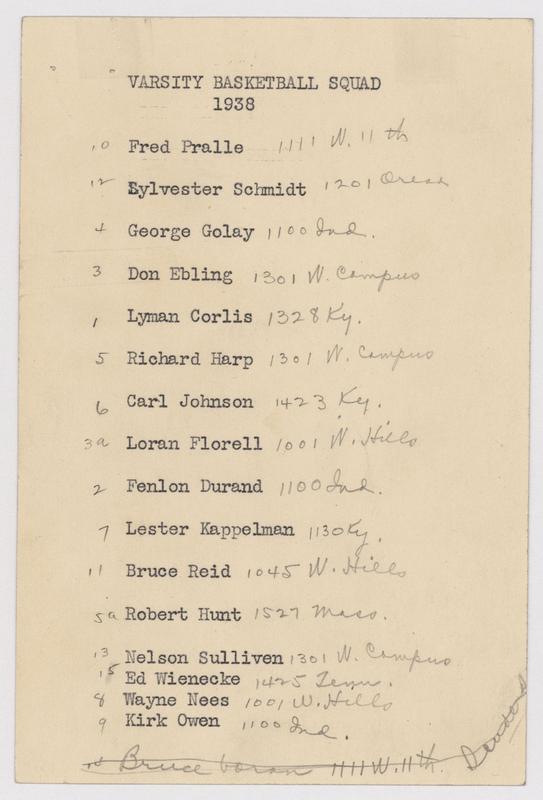 VARSITY BASKETBALL SQUAD
1938
10 Fred Pralle 1111 W. 11th
12 Sylvester Schmidt 1201 Oread
4 George Golay 1100 Ind.
3 Don Ebling 1301 W. Campus
1 Lyman Corlis 1328 Ky.
5 Richard Harp 1301 W. Campus
6 Carl Johnson 1423 Ky.
3a Loran Florell 1001 W. Hills
2 Fenlon Durand 1100 Ind.
7 Lester Kappelman 1130 Ky.
11 Bruce Reid 1045 W. Hills
5a Robert Hunt 1527 Mass.
13 Nelson Sulliven 1301 W. Campus
15 Ed Wienecke 1425 Tenn.
8 Wayne Nees 1001 W. Hills
9 Kirk Owen 1100 Ind.
Bruce 1111 W. 11th.